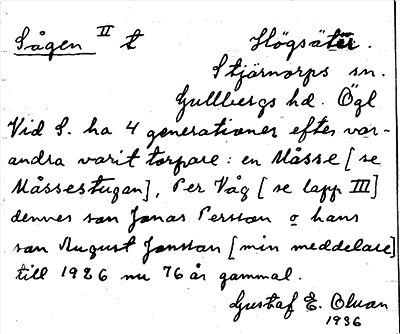 Sågen II t Högsäter.
Stjärnorps sn.
Gullbergs hd. Ögl
Vid S. ha 4 generationer efter var-
andra varit torpare: en Måsse [se
Måssestugan], Per Våg [se lapp III]
dennes son Jonas Persson o hans
son August Jonsson [min meddelare]
till 1926 nu 76 år gammal.
Gustaf E. Olson
1936